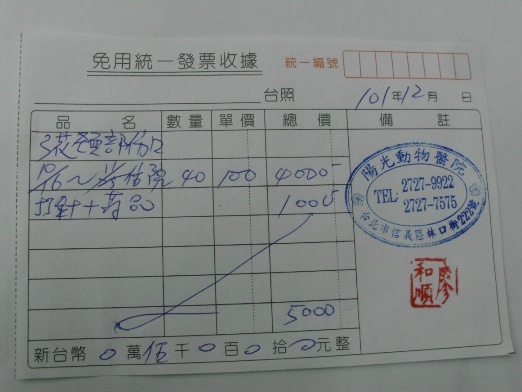 免用統一發票收據
統一編號
台照
101年12月 日
品 名 數量 單價 總價 備註
3花貓部份
住院 40 100 4000
打針+藥品 1000
5000
新台幣 0萬伍千0百0拾0元整
陽光動物醫院
TEL: 2727-9922
2727-7575
台北市信義區林口街222號
和順